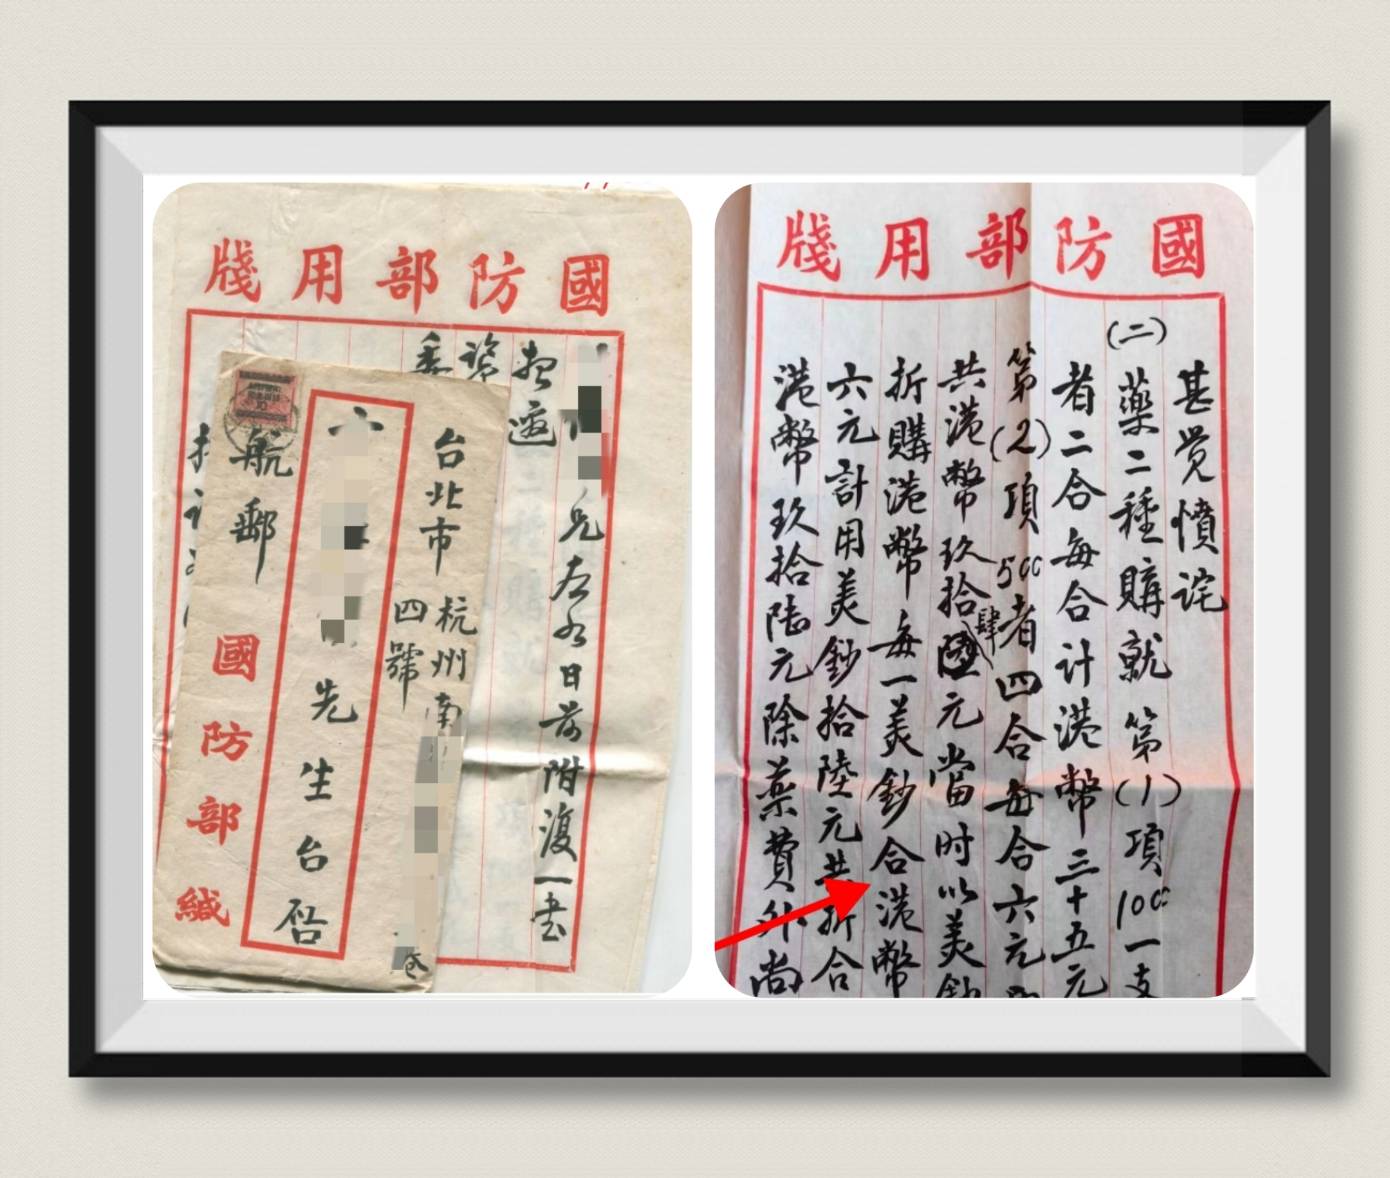 國防部用牋
兄左右日前附復一書
台北市
杭州南
四號
先生台啓
航郵
國防部緘
國防部用牋
甚覺憤詫
(二)藥二種購就第(1)項10cc一支
者二合每合计港幣三十五元
第(2)項5cc者四合每合六元
共港幣玖拾肆元當时以美鈔
折購港幣每一美鈔合港幣
六元計用美鈔拾陸元共折合
港幣玖拾陆元除藥費外尚